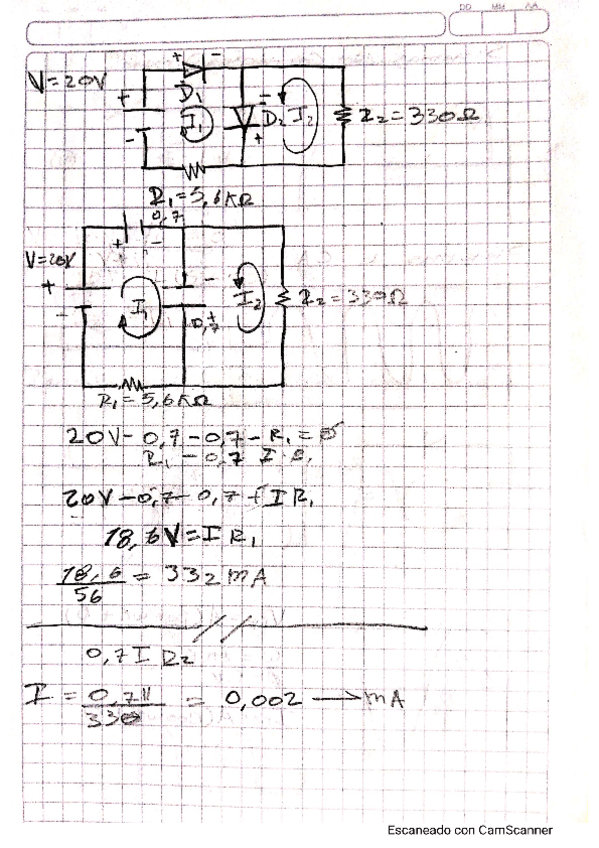 DD MM AA
V=20V
+ -
D1
+
-
I1
-
D2
+
I2
R2=330Ω
R1=5,6KΩ
0,7
+ -
V=20V
+
-
I1
-
+
0,7
I2
R2=330Ω
R1=5,6KΩ
20V-0,7-0,7-R1=0
R1-0,7
20V-0,7-0,7-IR1
18,6V=IR1
18,6
56
= 332mA
0,7IR2
I = 0,7
330
= 0,002 → mA
Escaneado con CamScanner